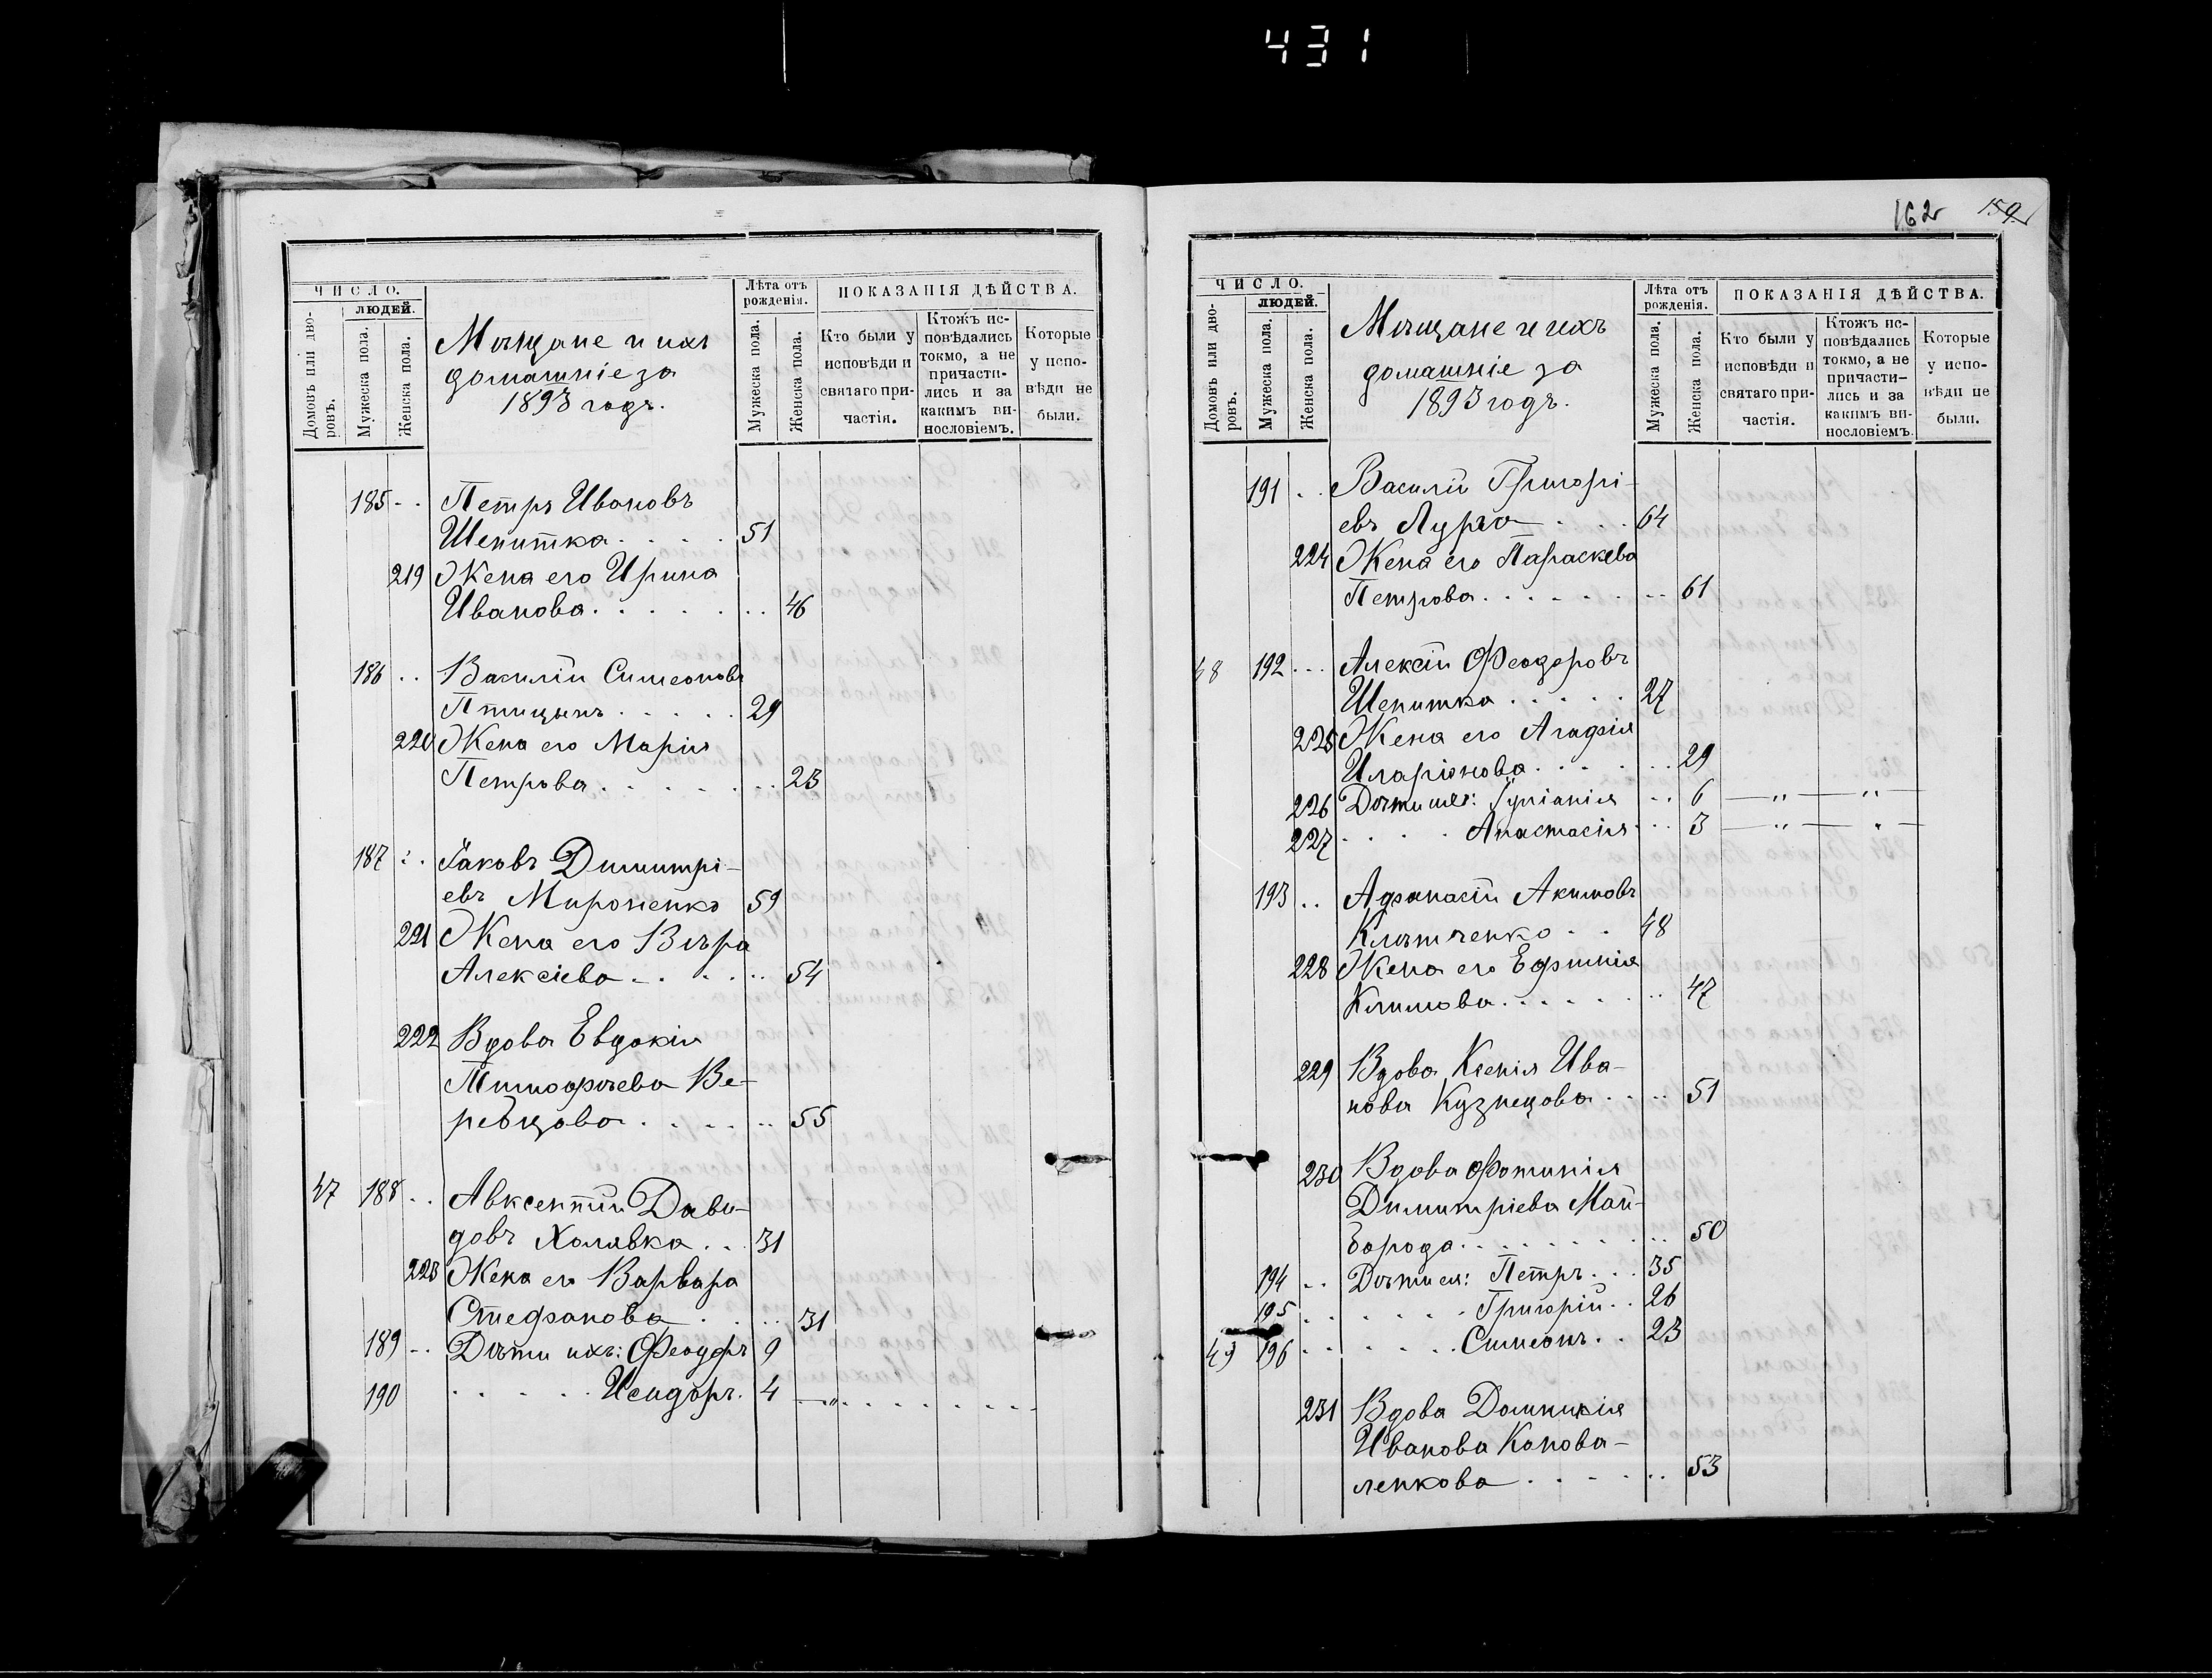 431
ЧИСЛО.
ЛЮДЕЙ.
Домовъ или дворовъ.
Мужеска пола.
Женска пола.
Мѣщане и ихъ
домашніе за
1893 годъ.
Лѣта отъ
рожденія.
Мужеска пола.
Женска пола.
ПОКАЗАНІЯ ДѢЙСТВА.
Кто были у
исповѣди и
святаго при-
частія.
Ктожъ ис-
повѣдались
токмо, а не
причасти-
лись и за
какимъ ви-
нословіемъ.
Которые
у испо-
вѣди не
были.
185 Петръ Ивановъ
Шепитка 51
219 Жена его Ирина
Иванова 46
186 Василій Симеоновъ
Птицынъ 29
220 Жена его Марія
Петрова 23
187 Іаковъ Димитрі-
евъ Мироненко 59
221 Жена его Вѣра
Алексіева 54
222 Вдова Евдокія
Тимофѣева Ве-
ребцова 55
47 188 Авксентій Дави-
довъ Холявка 31
223 Жена его Варвара
Стефанова 31
189 Дѣти ихъ: Феодоръ 9
190 Исидоръ. 4 — „
162 159
ЧИСЛО.
ЛЮДЕЙ.
Домовъ или дво-
ровъ.
Мужеска пола.
Женска пола.
Мѣщане и ихъ
домашніе за
1893 годъ.
Лѣта отъ
рожденія.
Мужеска пола.
Женска пола.
ПОКАЗАНІЯ ДѢЙСТВА.
Кто были у
исповѣди и
святаго при-
частія.
Ктожъ ис-
повѣдались
токмо, а не
причасти-
лись и за
какимъ ви-
нословіемъ.
Которые
у испо-
вѣди не
были.
191 Василій Григорі-
евъ 64
224 Жена его Параскева
Петрова 61
48 192 Алексій Феодоровъ
Шепитка 27
225 Жена его Агафія
Иларіонова 29
226 Дѣти ихъ: Іуліанія 6 — „ — „ —
227 Анастасія 3 — „ — „ —
193 Афанасій Акимовъ
Клѣтченко 48
228 Жена его Ефимія
Климова 47
229 Вдова Ксенія Ива-
нова Кузнецова 51
230 Вдова Фотинія
Димитріева Май-
борода 50
194 Дѣти ея: Петръ 35
195 Григорій 26
49 196 Симеонъ 23
231 Вдова Домникія
Иванова Конова-
ленкова 53